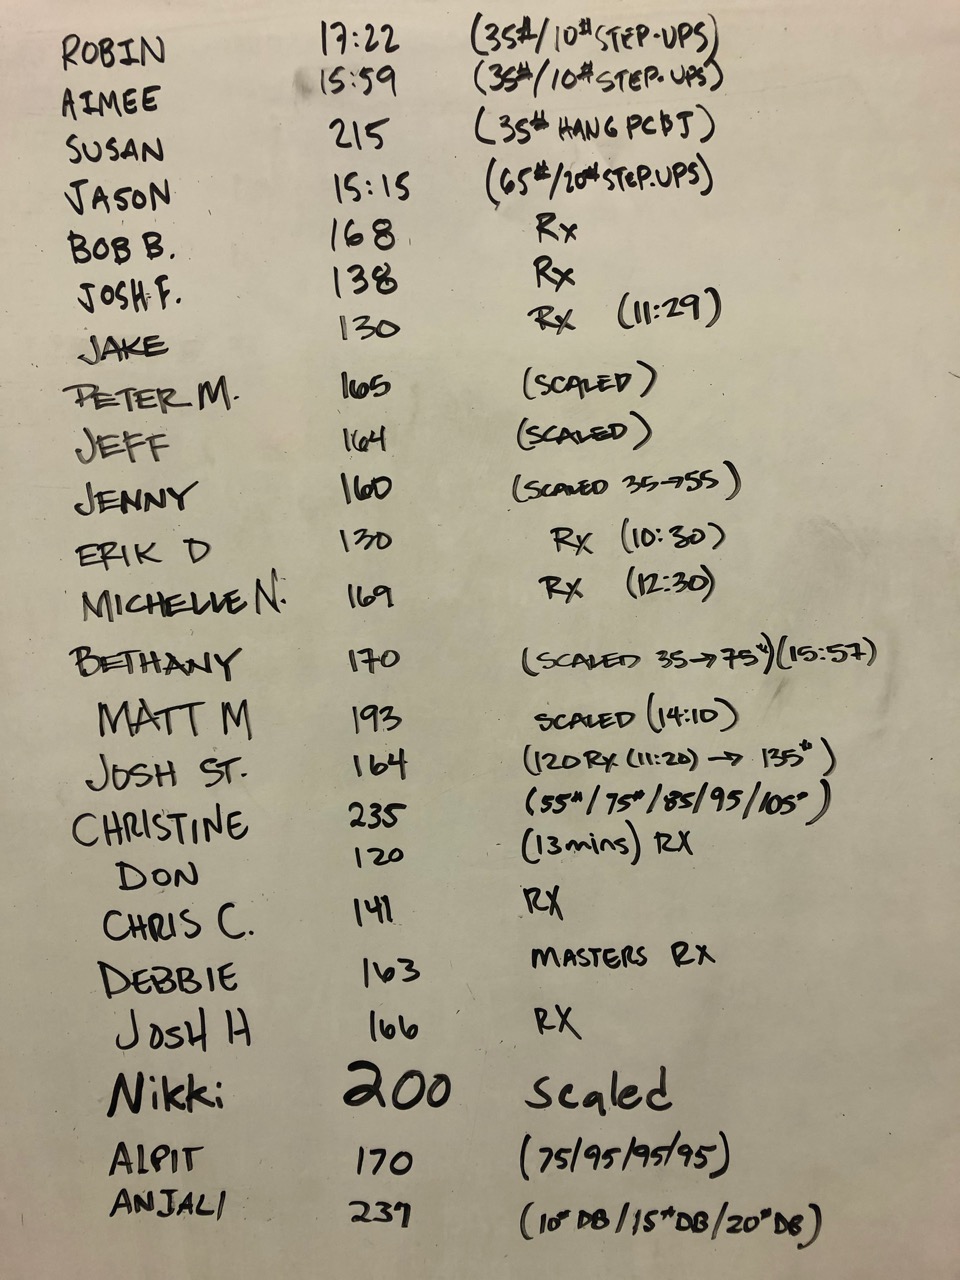 ROBIN 17:22 (35#/10# STEP-UPS)
AIMEE 15:59 (35#/10# STEP-UPS)
SUSAN 215 (35# HANG PC&J)
JASON 15:15 (65#/20# STEP-UPS)
BOB B. 168 Rx
JOSH F. 138 Rx
JAKE 130 Rx (11:29)
PETER M. 165 (SCALED)
JEFF 164 (SCALED)
JENNY 160 (SCALED 35→55)
ERIK D 130 Rx (10:30)
MICHELLE N. 169 Rx (12:30)
BETHANY 170 (SCALED 35→75#)(15:57)
MATT M 193 SCALED (14:10)
JOSH ST. 164 (120 Rx (11:20) → 135#)
CHRISTINE 235 (55#/75#/85/95/105#)
DON 120 (13mins) RX
CHRIS C. 141 RX
DEBBIE 163 MASTERS RX
JOSH H 166 RX
Nikki 200 Scaled
ALPIT 170 (75/95/95/95)
ANJALI 239 (10# DB/15# DB/20# DB)